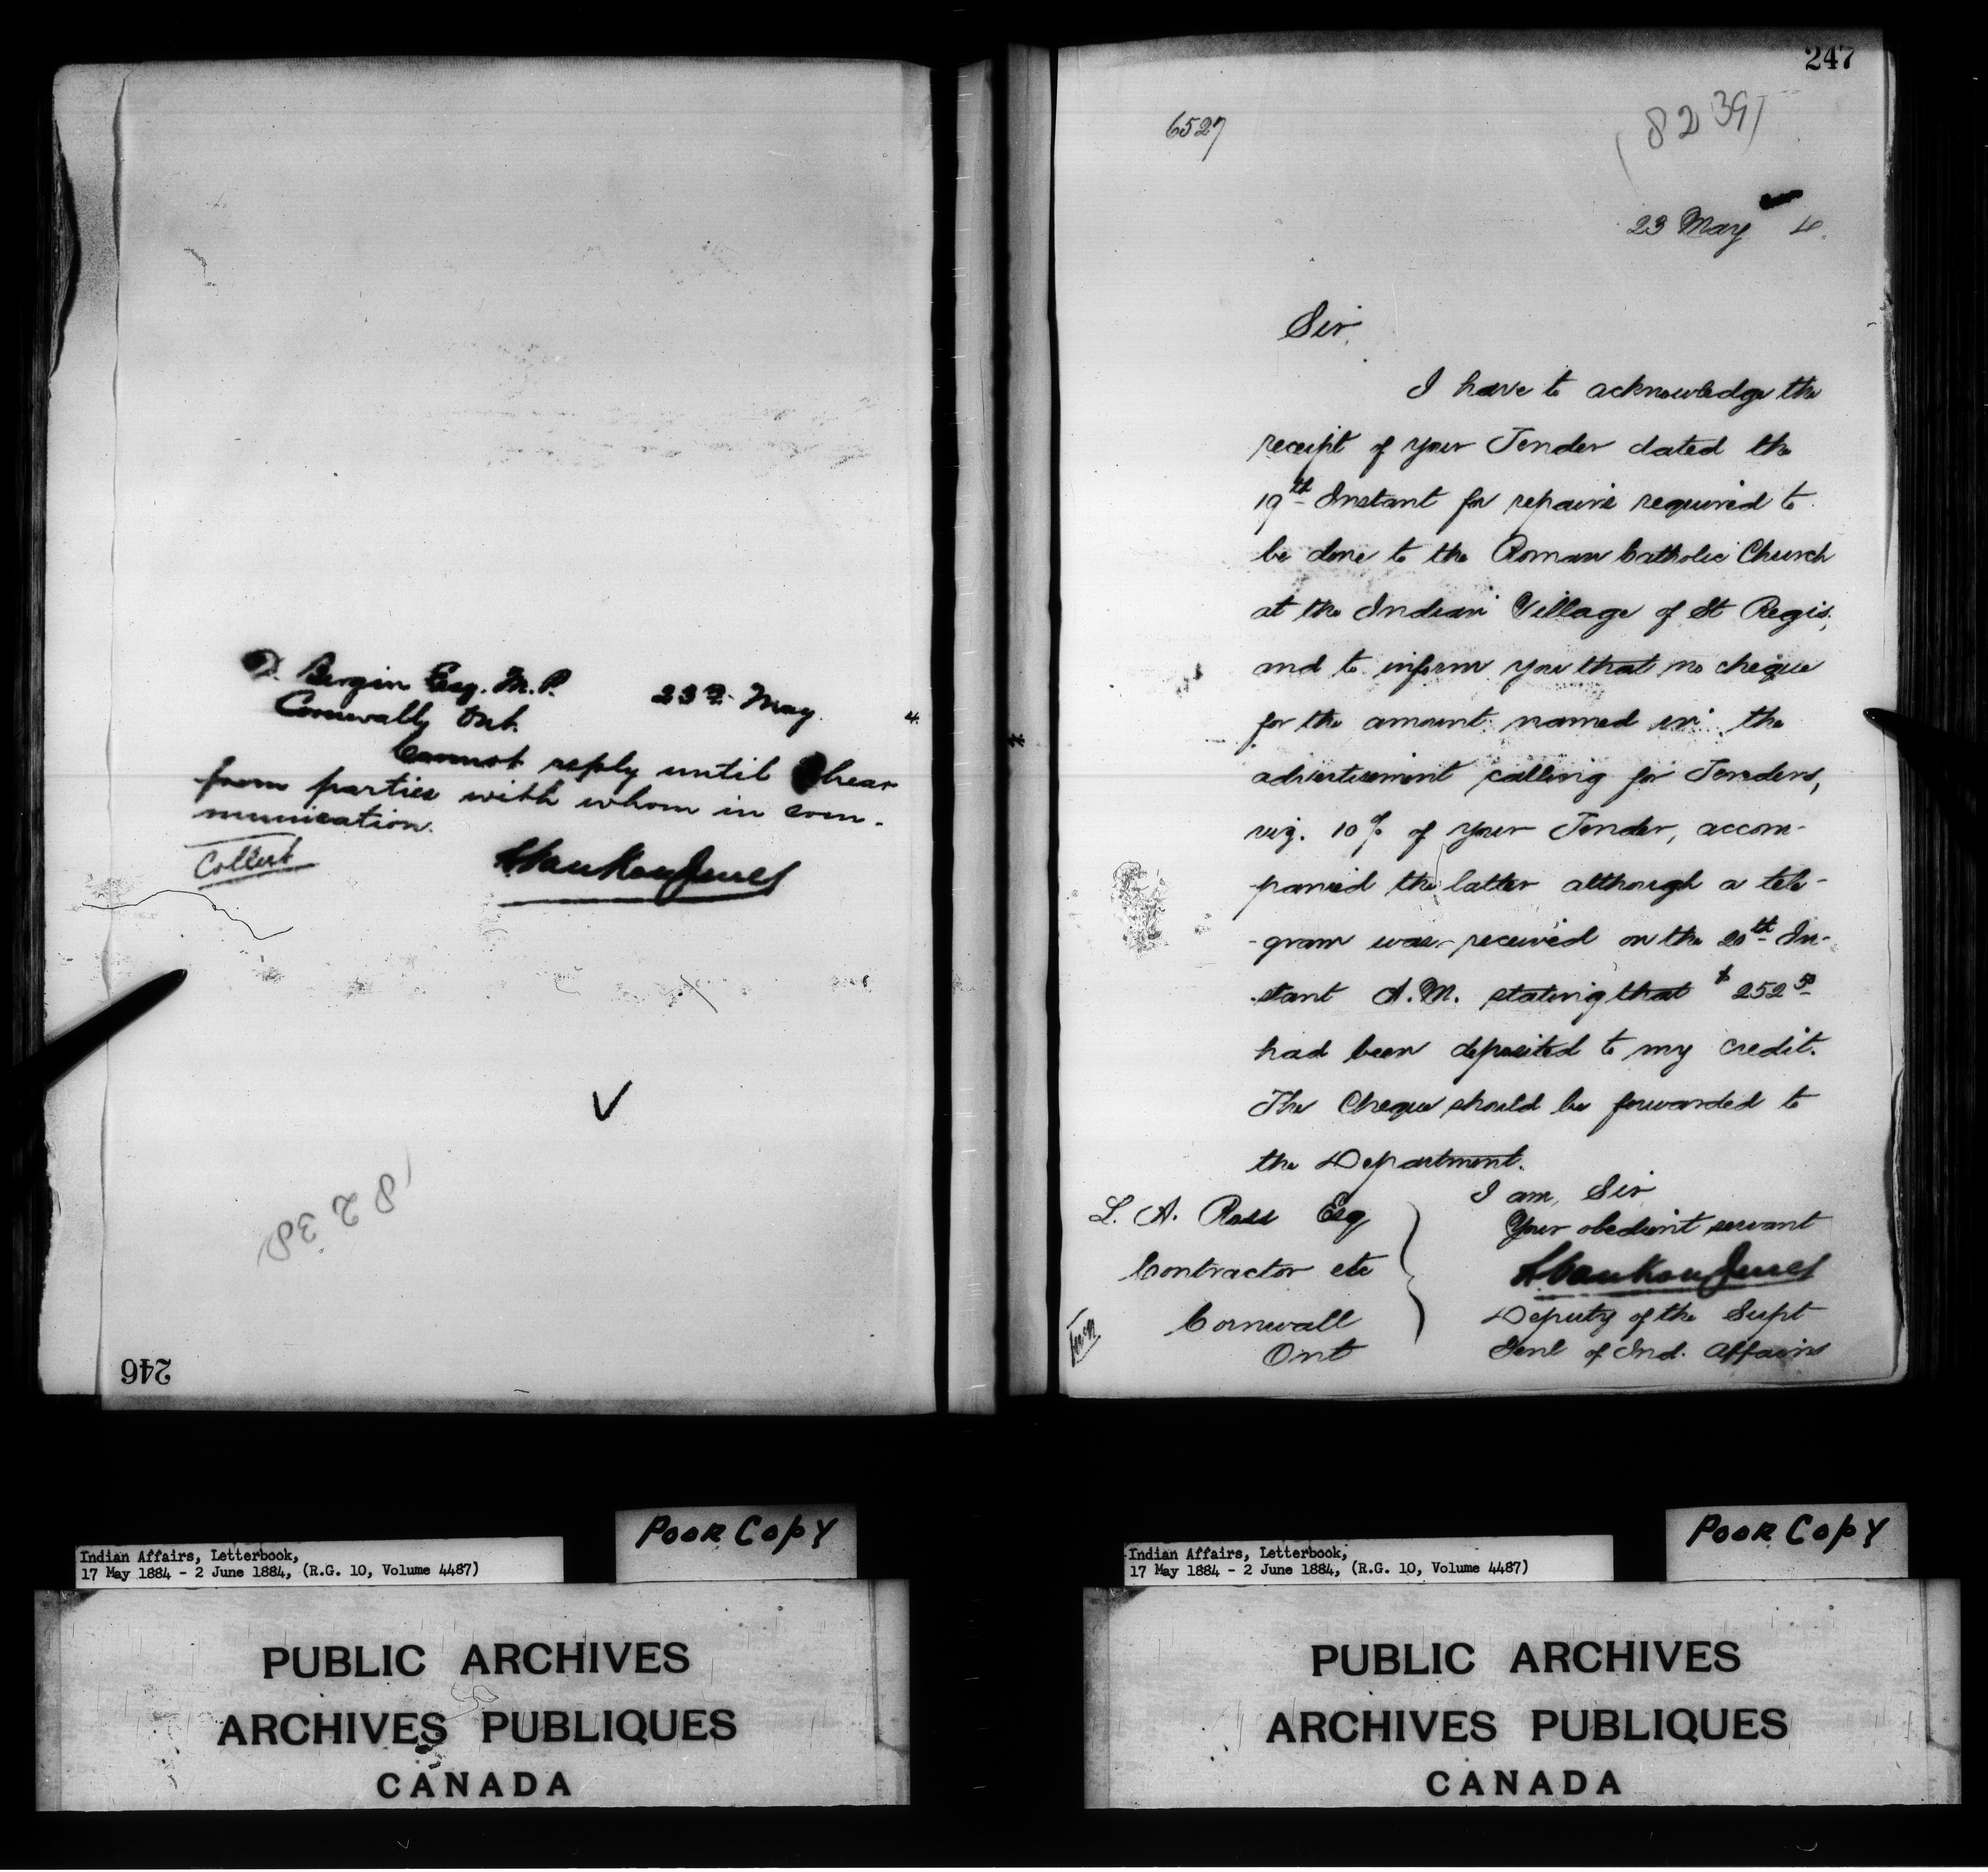 D. Bergin Esq. M.P. 23rd May 4
Cornwall, Ont.
Cannot reply until I hear
from parties with whom in com-
munication.
Collect
LVankoughnet
8238
246
247
6527
8239
23 May 4.
Sir,
I have to acknowledge the
receipt of your Tender dated the
19th Instant for repairs required to
be done to the Roman Catholic Church
at the Indian Village of St Regis,
and to inform you that no cheque
for the amount named in the
advertisement calling for Tenders,
viz. 10% of your Tender, accom-
panied the latter although a tele-
-gram was received on the 20th In-
-stant A.M. stating that $252 50
had been deposited to my credit.
The Cheque should be forwarded to
the Department.
I am, Sir
Your obedient servant
LVankoughnet
Deputy of the Supt
Genl of Ind. Affairs
L. A. Ross Esq
Contractor etc
Cornwall
Ont
Indian Affairs, Letterbook,
17 May 1884 - 2 June 1884, (R.G. 10, Volume 4487)
POOR COPY
PUBLIC ARCHIVES
ARCHIVES PUBLIQUES
CANADA
Indian Affairs, Letterbook,
17 May 1884 - 2 June 1884, (R.G. 10, Volume 4487)
POOR COPY
PUBLIC ARCHIVES
ARCHIVES PUBLIQUES
CANADA